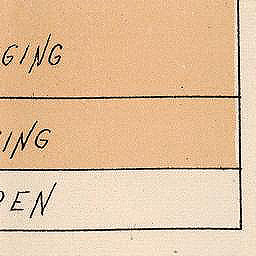 GING
ING
PEN